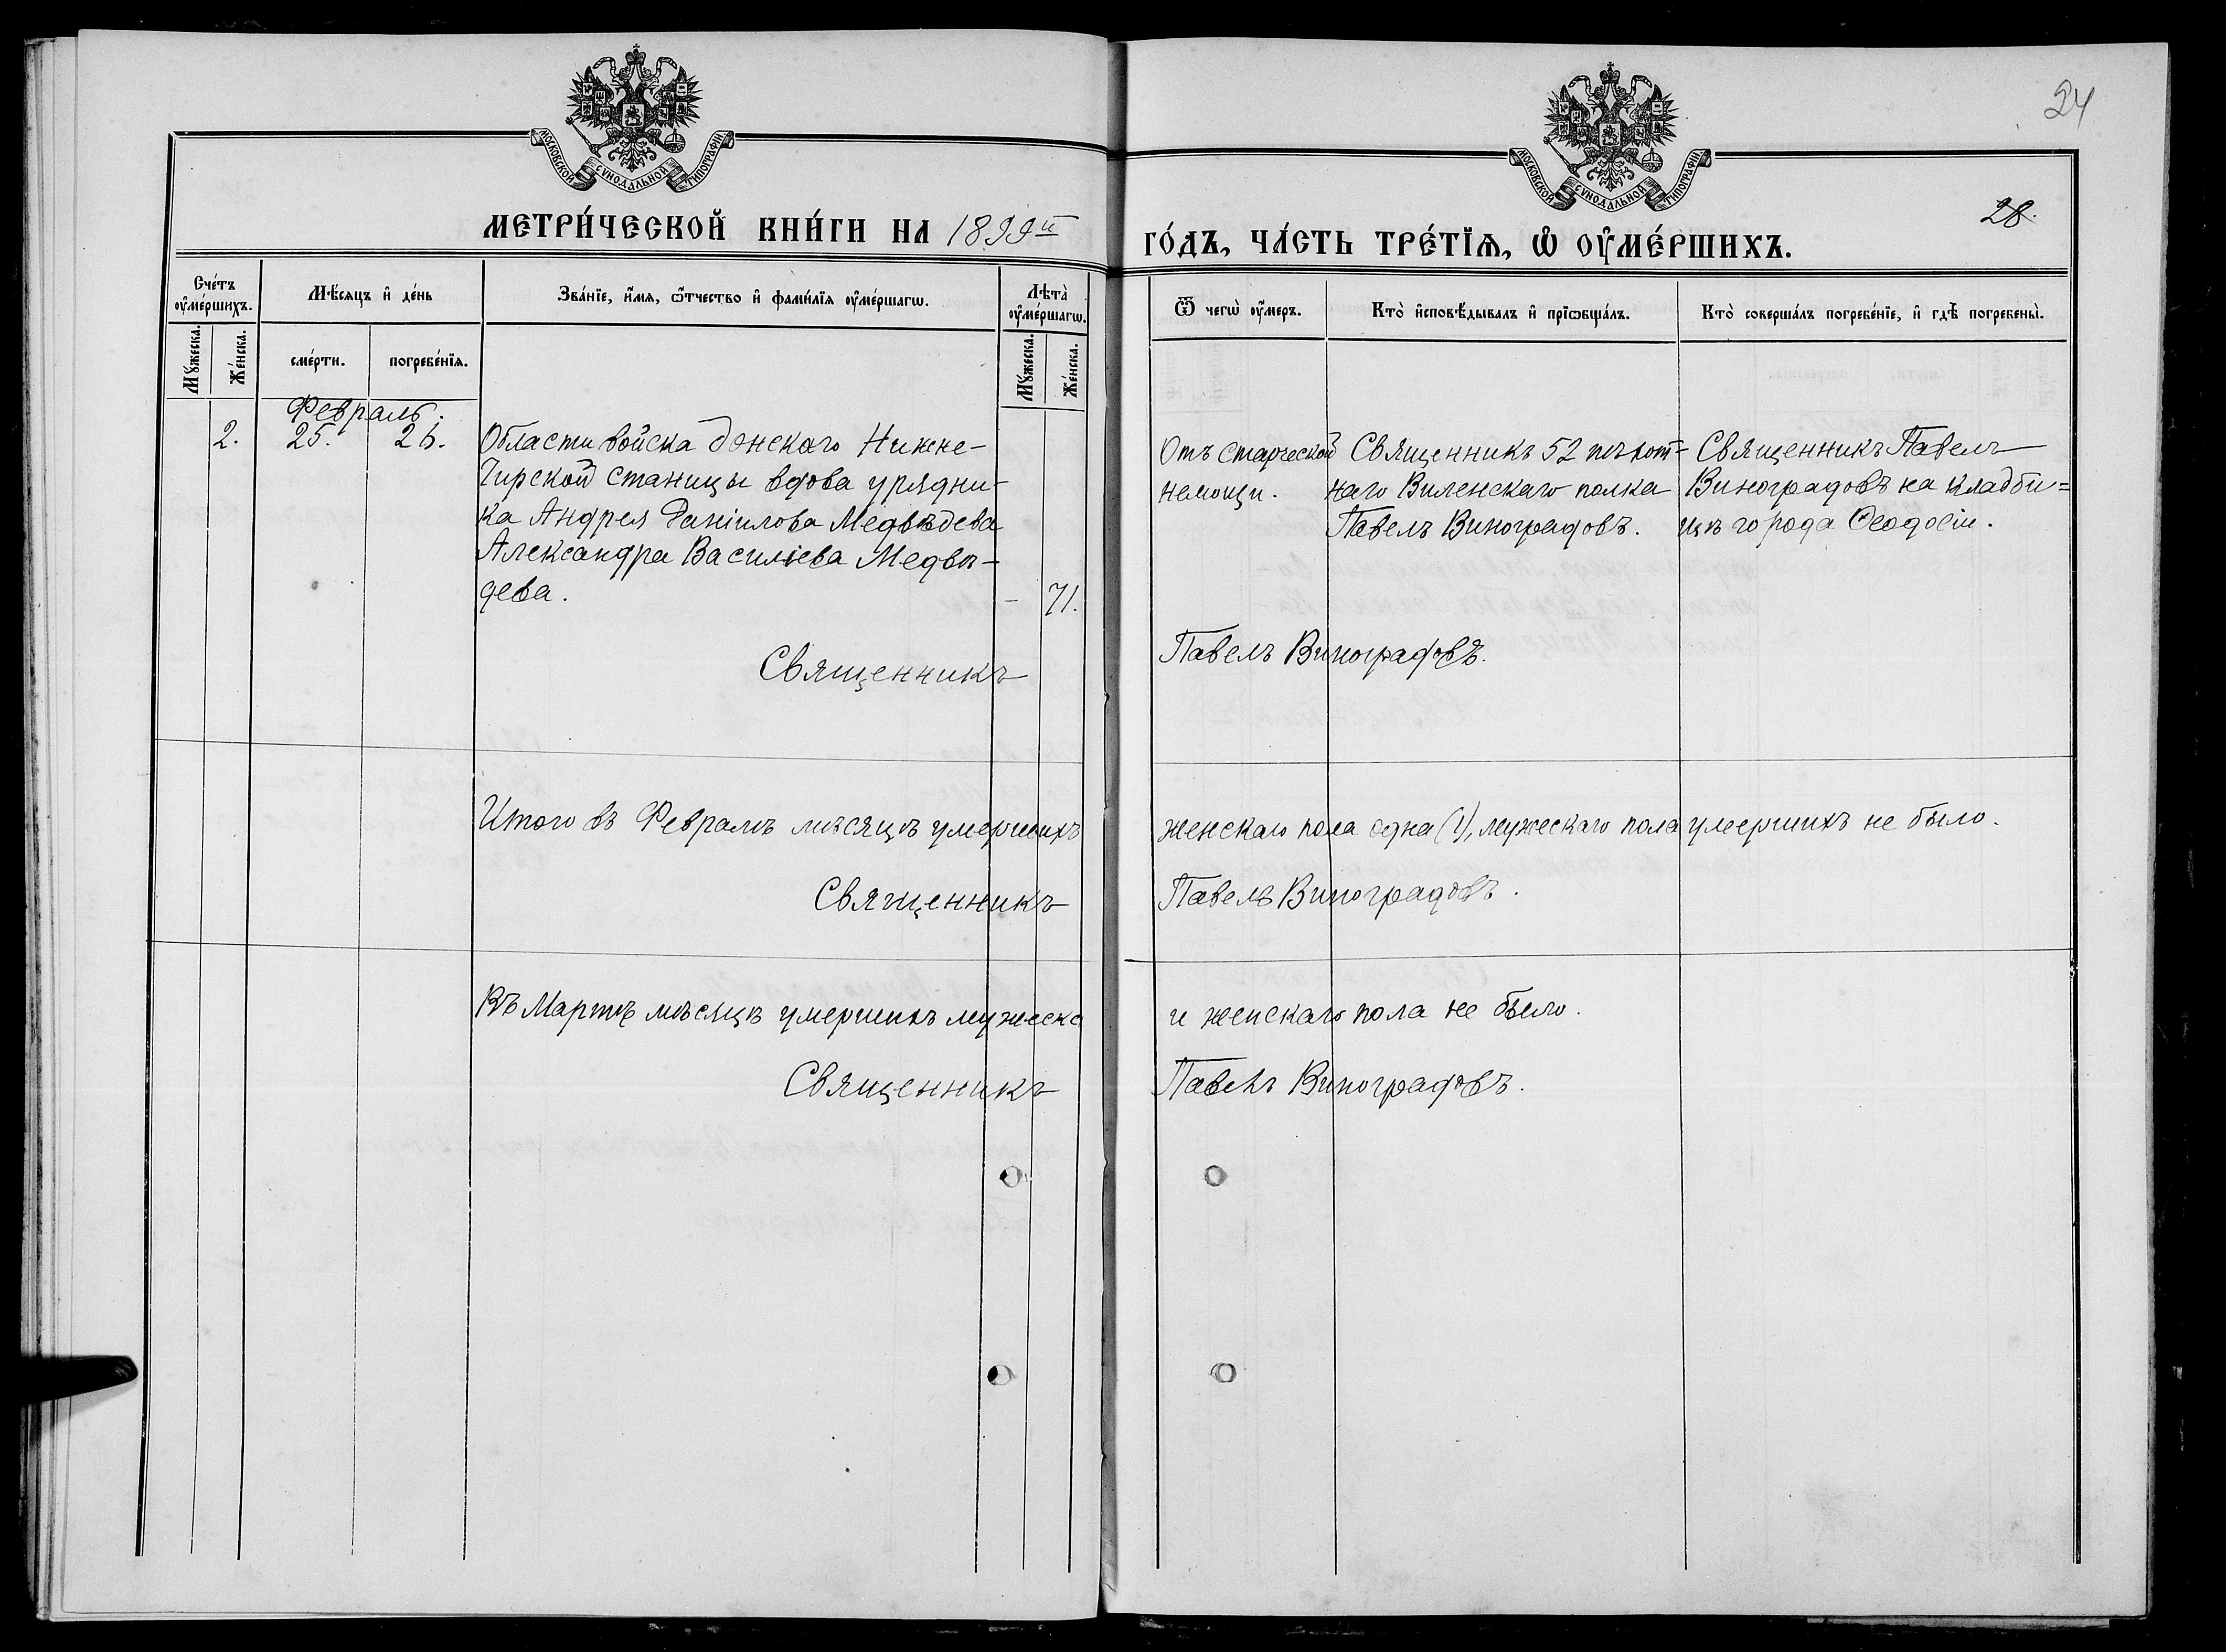 24
МОСКОВСКОЙ СѴНОДАЛЬНОЙ ТИПОГРАФІИ
МОСКОВСКОЙ СѴНОДАЛЬНОЙ ТИПОГРАФІИ
28.
МЕТРИ́ЧЕСКОЙ КНИ́ГИ НА 1899й
ГО́ДЪ, ЧА́СТЬ ТРЕ́ТЇѦ, Ѡ҆ ОУ҆МЕ́РШИХЪ.
Сче́тъ оу҆ме́ршихъ.
Мѣ́сѧцъ и҆ де́нь
Зва́нїе, и҆́мѧ, ѻ҆́тчество и҆ фами́лїѧ оу҆ме́ршагѡ.
Лѣта̀ оу҆ме́ршагѡ.
Ѿ чегѡ̀ оу҆́меръ.
Кто̀ и҆сповѣ́дывалъ и҆ прїѡбща́лъ.
Кто̀ соверша́лъ погребе́нїе, и҆ гдѣ̀ погребены̀.
Мꙋ́жеска.
Же́нска.
сме́рти.
погребе́нїѧ.
Мꙋ́жеска.
Же́нска.
Февраль.
2. 25. 26.
Области войска донскаго Нижне-
Чирской станицы вдова урядни-
ка Андрея Даніилова Медвѣдева
Александра Василіева Медвѣ-
дева. – 71.
Отъ старческой
немощи.
Священникъ 52 пѣхот-
наго Виленскаго полка
Павелъ Виноградовъ.
Священникъ Павелъ
Виноградовъ на кладби=
щѣ города Ѳеодосіи.
Священникъ Павелъ Виноградовъ.
Итого въ Февралѣ мѣсяцѣ умершихъ женскаго пола одна (1), мужескаго пола умершихъ не было.
Священникъ Павелъ Виноградовъ.
Въ Мартѣ мѣсяцѣ умершихъ мужеска и женскаго пола не было.
Священникъ Павелъ Виноградовъ.